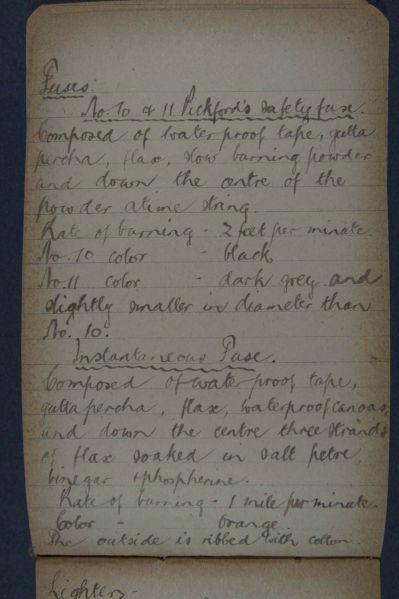 Fuses.
No. 10 & 11 Pickford's safety fuse.
Composed of water proof tape, gutta
percha, flax, slow burning powder
and down the centre of the
powder a time string.
Rate of burning - 2 feet per minate.
No. 10 color - black
No. 11 color - dark grey and
slightly smaller in diameter than
No. 10.
Instantaneous Fuse.
Composed of water proof tape,
gutta percha, flax, waterproof canvas,
and down the centre three strands
of flax soaked in salt petre,
vinegar + phospherine.
Rate of burning - 1 mile per minate.
Color - Orange
The outside is ribbed with cotton.
Lighters -